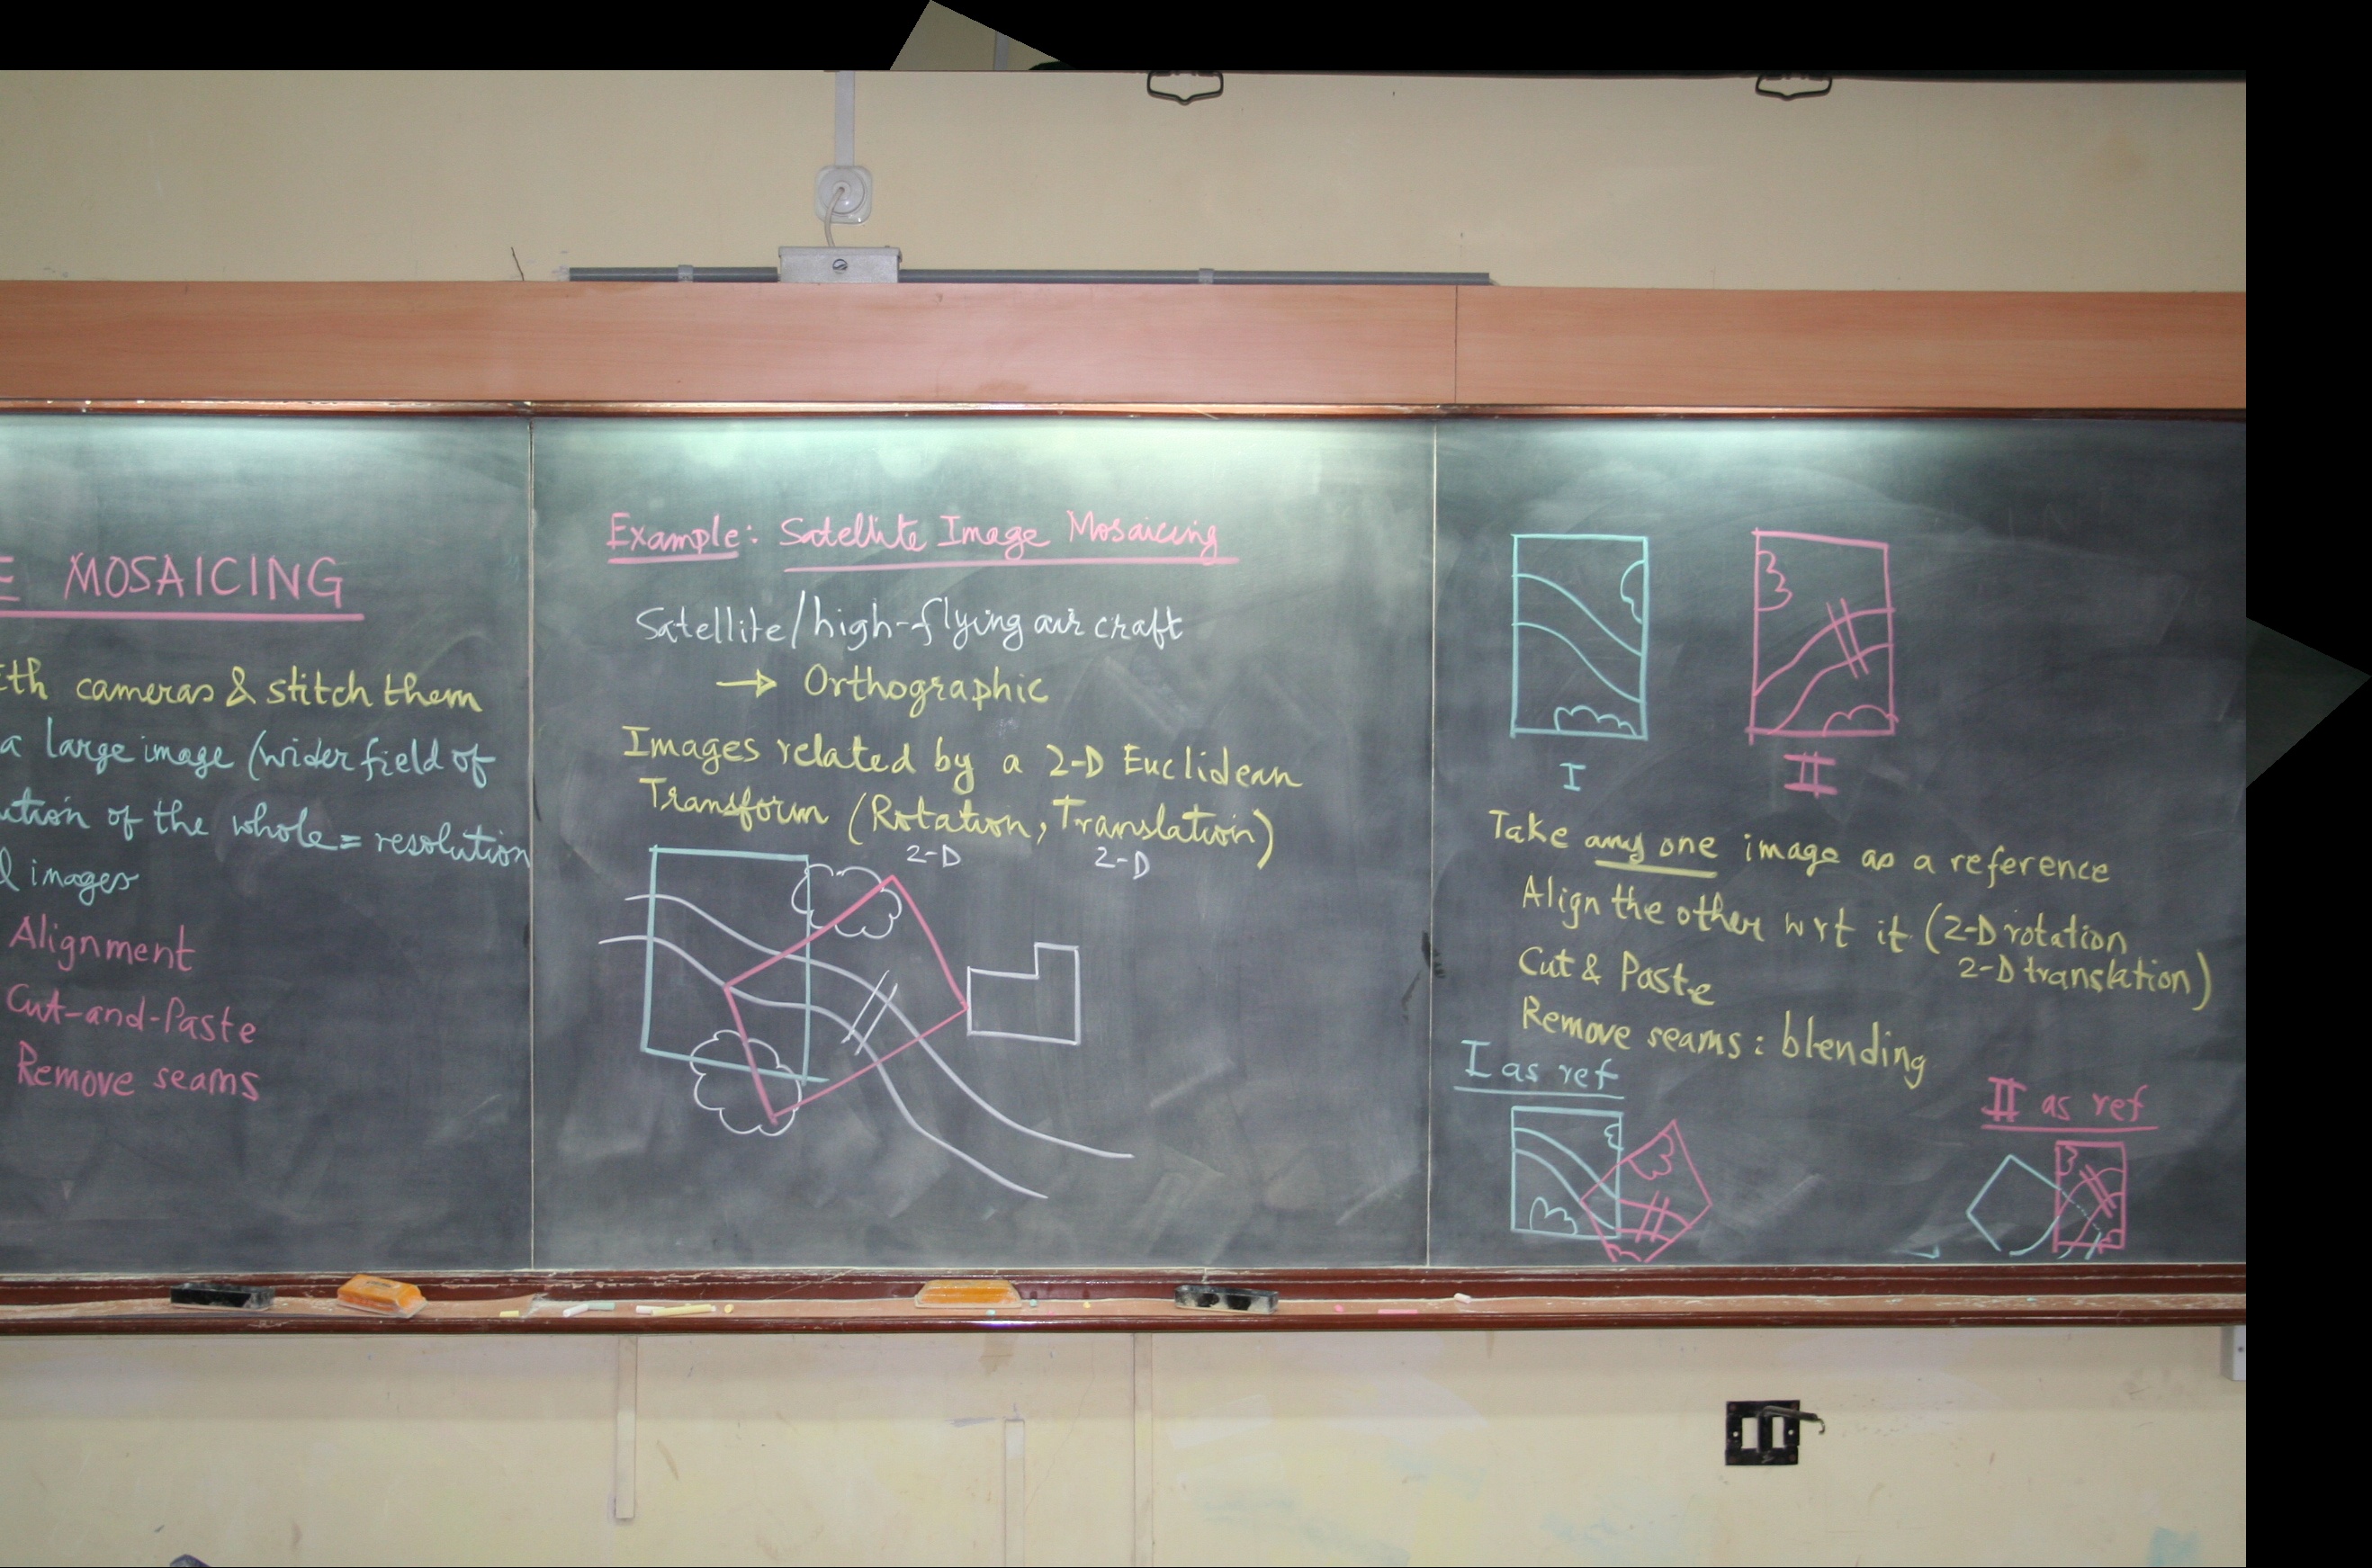 MOSAICING
cameras & stitch them
a large image (wider field of
of the whole = resolution
images
Alignment
Cut-and-Paste
Remove seams
Example: Satellite Image Mosaicing
Satellite/high-flying air craft
→ Orthographic
Images related by a 2-D Euclidean
Transform (Rotation, Translation)
2-D 2-D
I II
Take any one image as a reference
Align the other wrt it (2-D rotation
2-D translation)
Cut & Paste
Remove seams: blending
I as ref
II as ref